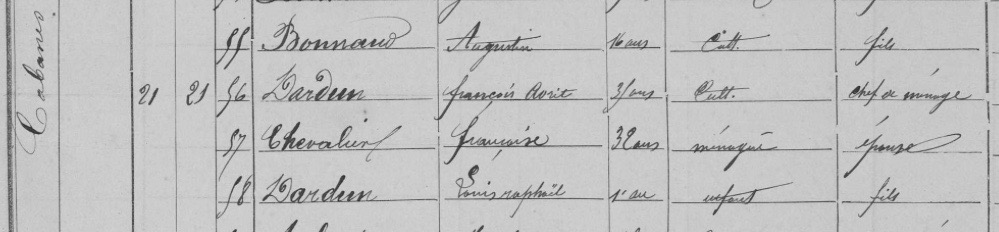 Cabanes
55 Bonnaud Augustin 16 ans Cult. fils
21 21 56 Dardun françois 35 ans Cult. chef de ménage
57 Chevalier françoise 32 ans ménagère épouse
58 Dardun Louis raphaël 1 an enfant fils